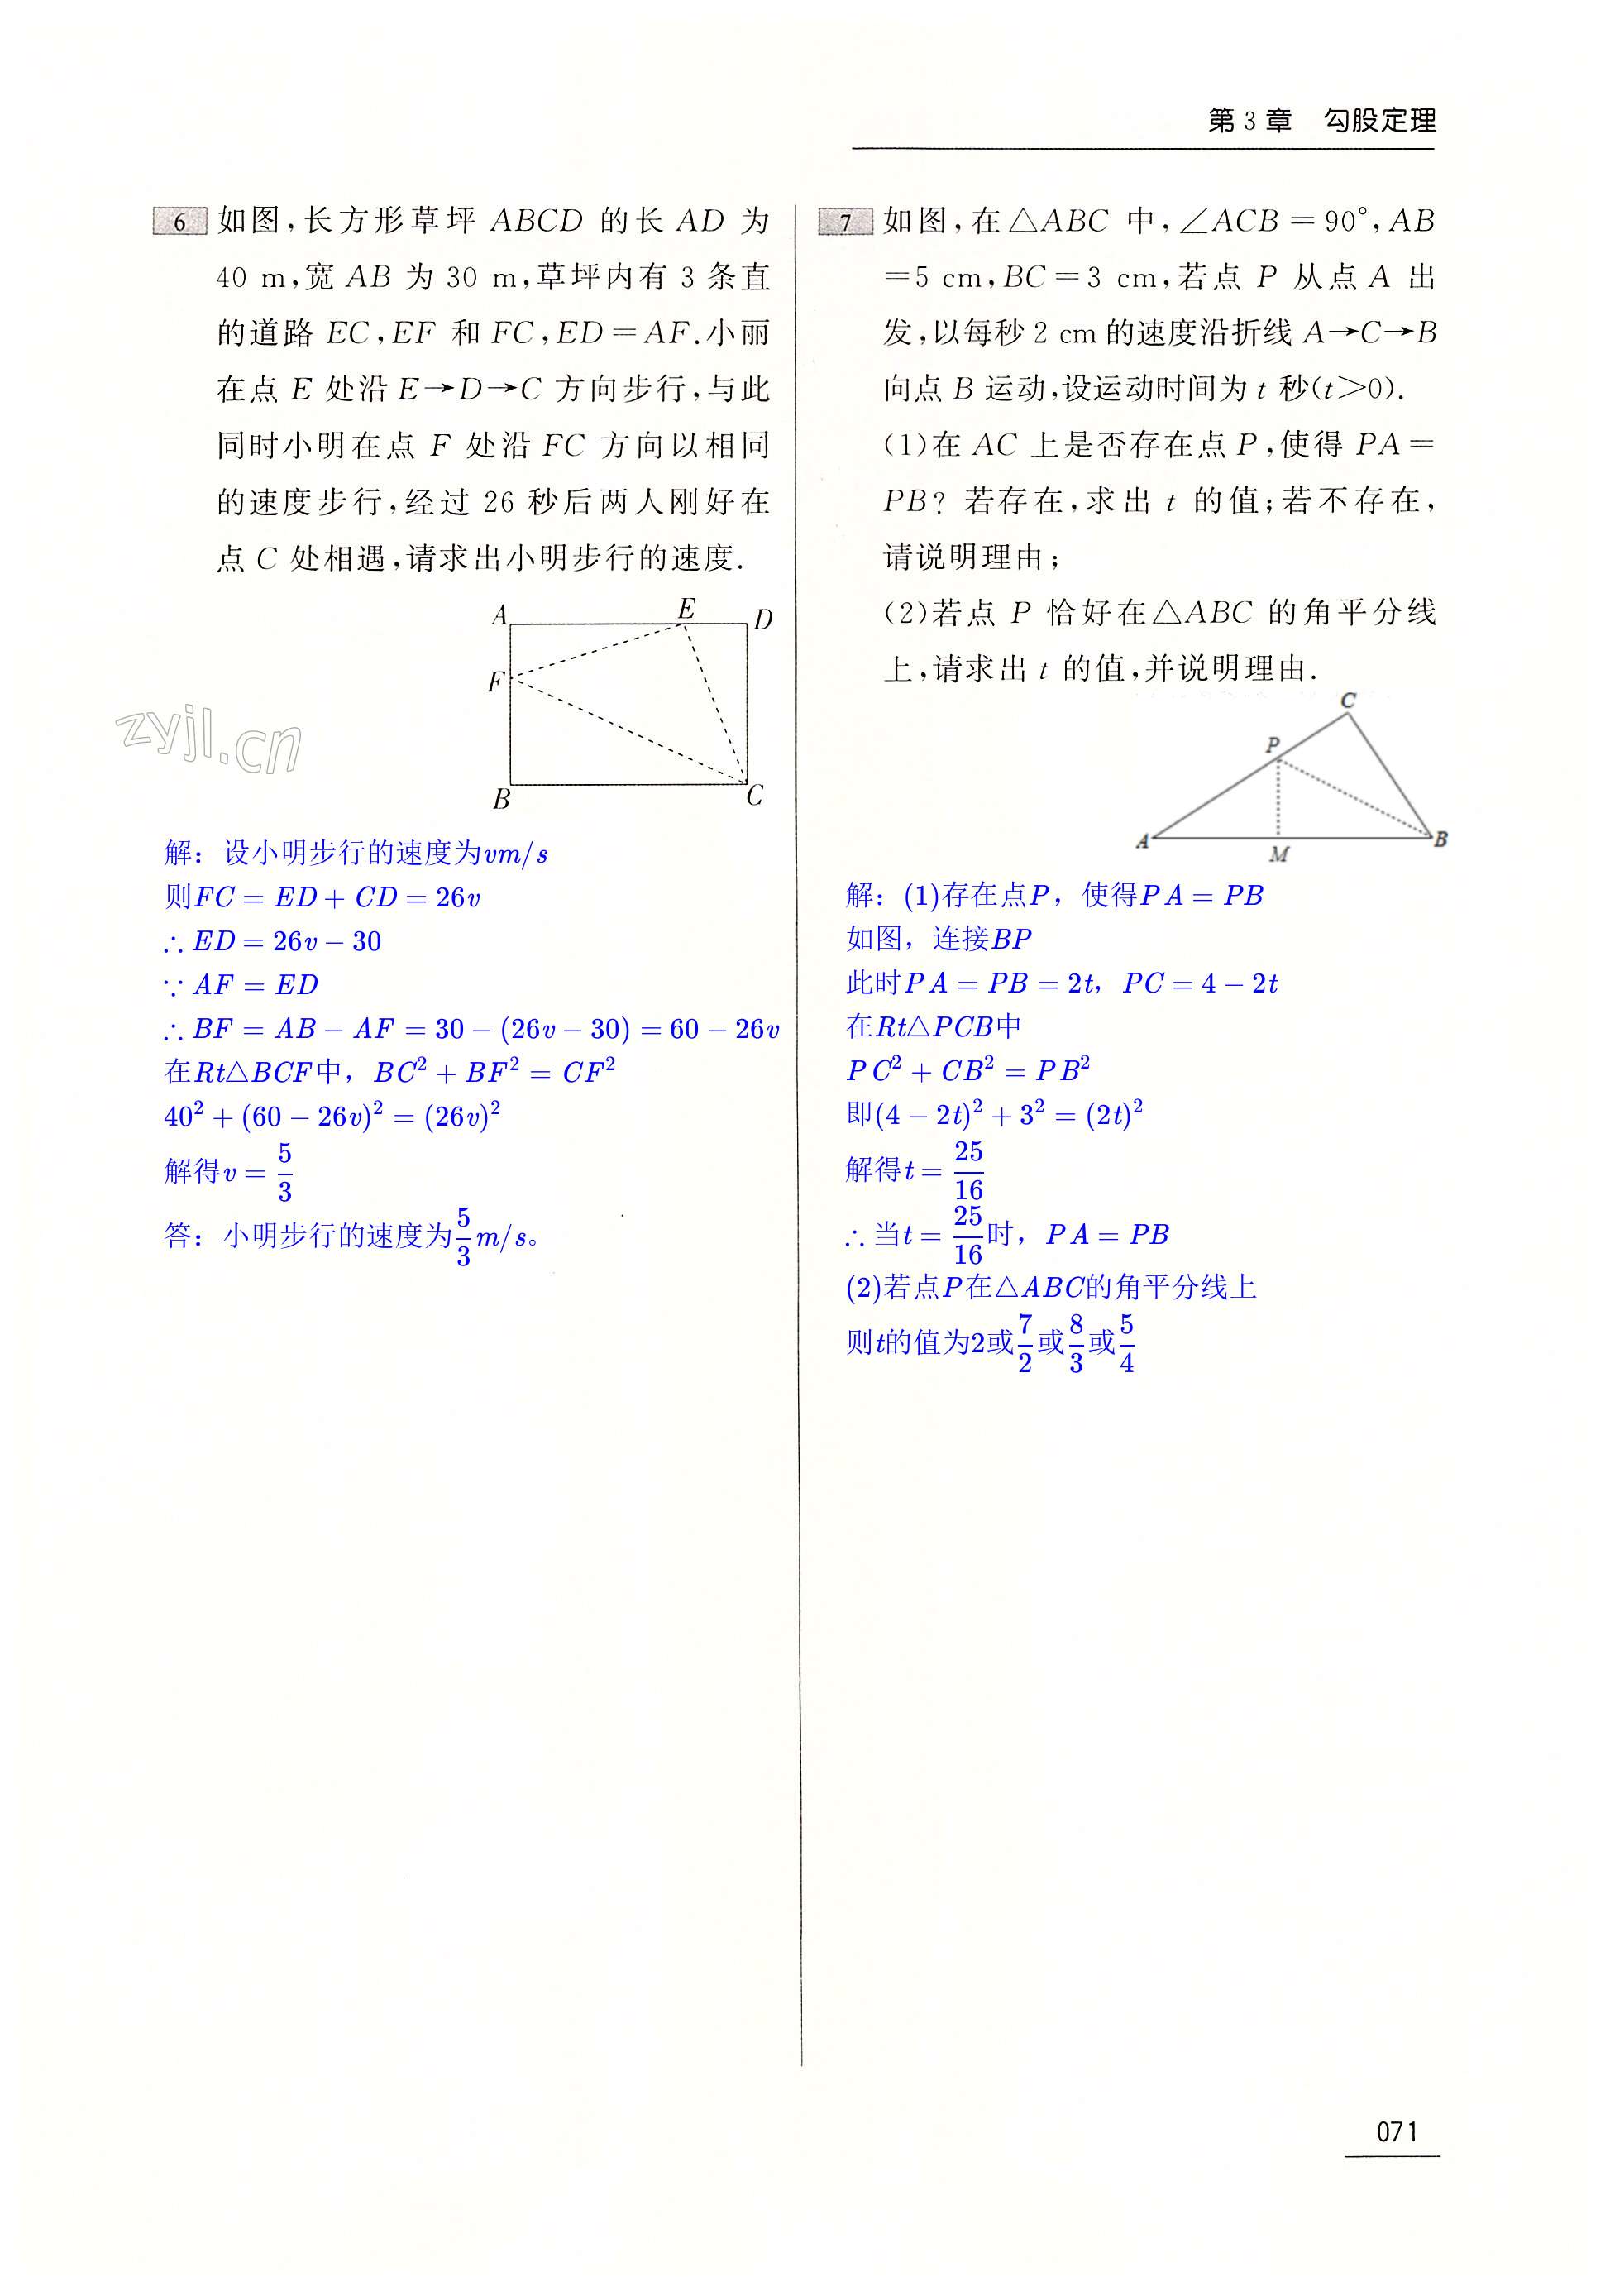 第3章 勾股定理
6 如图,长方形草坪 ABCD 的长 AD 为
40 m,宽 AB 为 30 m,草坪内有 3 条直
的道路 EC,EF 和 FC,ED=AF.小丽
在点 E 处沿 E→D→C 方向步行,与此
同时小明在点 F 处沿 FC 方向以相同
的速度步行,经过 26 秒后两人刚好在
点 C 处相遇,请求出小明步行的速度.
A E D
F
B C
zyjl.cn
解：设小明步行的速度为vm/s
则FC = ED + CD = 26v
∴ ED = 26v − 30
∵ AF = ED
∴ BF = AB − AF = 30 − (26v − 30) = 60 − 26v
在Rt△BCF中，BC² + BF² = CF²
40² + (60 − 26v)² = (26v)²
解得v = 5/3
答：小明步行的速度为5/3m/s。
7 如图,在△ABC 中,∠ACB=90°,AB
=5 cm,BC=3 cm,若点 P 从点 A 出
发,以每秒 2 cm 的速度沿折线 A→C→B
向点 B 运动,设运动时间为 t 秒(t>0).
(1)在 AC 上是否存在点 P,使得 PA=
PB? 若存在,求出 t 的值;若不存在,
请说明理由;
(2)若点 P 恰好在△ABC 的角平分线
上,请求出 t 的值,并说明理由.
C
P
A M B
解：(1)存在点P，使得PA = PB
如图，连接BP
此时PA = PB = 2t，PC = 4 − 2t
在Rt△PCB中
PC² + CB² = PB²
即(4 − 2t)² + 3² = (2t)²
解得t = 25/16
∴ 当t = 25/16时，PA = PB
(2)若点P在△ABC的角平分线上
则t的值为2或7/2或8/3或5/4
071